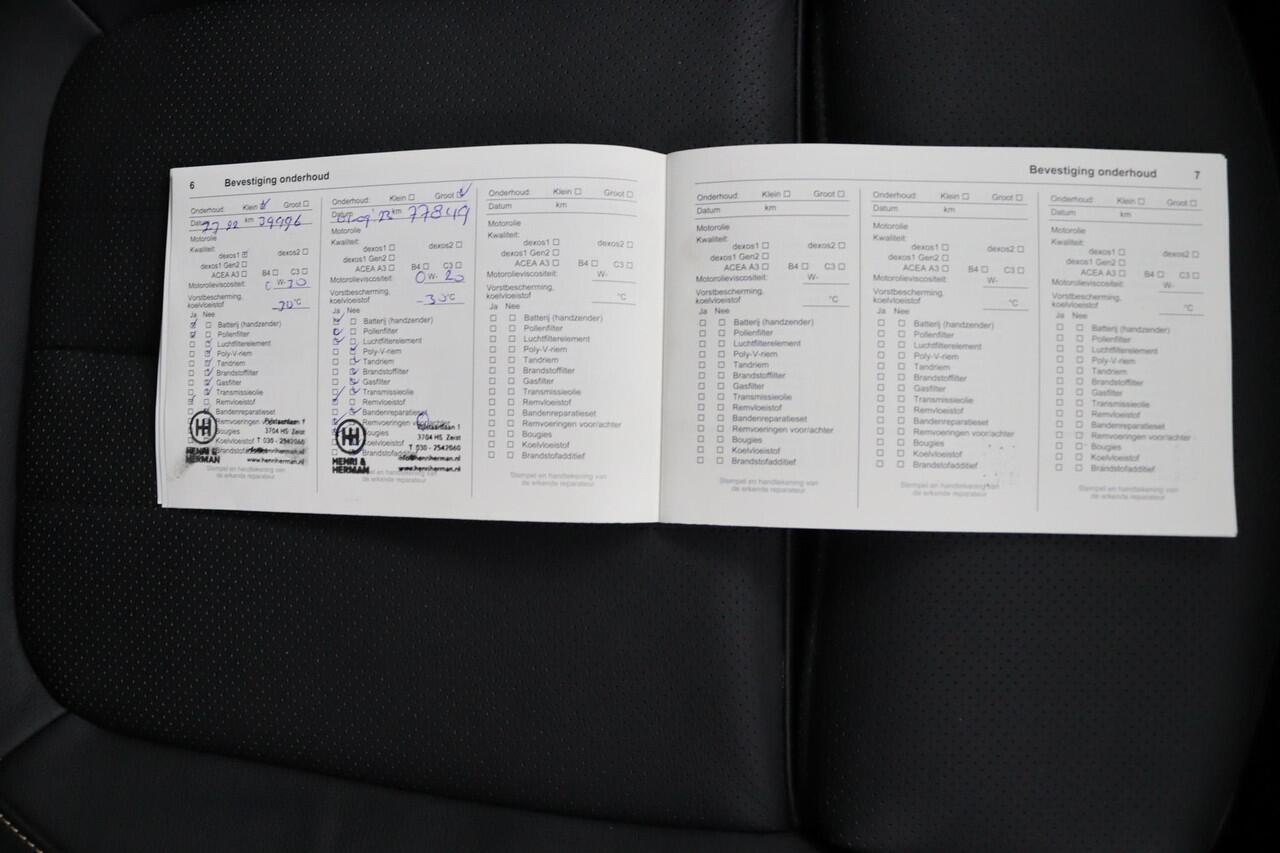 6 Bevestiging onderhoud
Onderhoud: Klein ☑ Groot ☐
Datum km 39996
Motorolie
Kwaliteit:
dexos1 ☒ dexos2 ☐
dexos1 Gen2 ☐
ACEA A3 ☐ B4 ☐ C3 ☐
Motorolieviscositeit: 0 W- 30
Vorstbescherming,
koelvloeistof -30 °C
Ja Nee
Batterij (handzender)
Pollenfilter
Luchtfilterelement
Poly-V-riem
Tandriem
Brandstoffilter
Gasfilter
Transmissieolie
Remvloeistof
Bandenreparatieset
Bougies
Koelvloeistof
HENRI &
HERMAN
3704 HS Zeist
T 030 - 2542060
www.henriherman.nl
Stempel en handtekening van
de erkende reparateur
Onderhoud: Klein ☐ Groot ☑
Datum km 77849
Motorolie
Kwaliteit:
dexos1 ☐ dexos2 ☐
dexos1 Gen2 ☐
ACEA A3 ☐ B4 ☐ C3 ☐
Motorolieviscositeit: 0 W- 20
Vorstbescherming,
koelvloeistof -30 °C
Ja Nee
Batterij (handzender)
Pollenfilter
Luchtfilterelement
Poly-V-riem
Tandriem
Brandstoffilter
Gasfilter
Transmissieolie
Remvloeistof
Bandenreparatieset
Remvoeringen
Bougies
Koelvloeistof
HENRI &
HERMAN
3704 HS Zeist
T 030 - 2542060
info@henriherman.nl
www.henriherman.nl
en handtekening van
de erkende reparateur
Onderhoud: Klein ☐ Groot ☐
Datum km
Motorolie
Kwaliteit:
dexos1 ☐ dexos2 ☐
dexos1 Gen2 ☐
ACEA A3 ☐ B4 ☐ C3 ☐
Motorolieviscositeit: W-
Vorstbescherming,
koelvloeistof °C
Ja Nee
☐ ☐ Batterij (handzender)
☐ ☐ Pollenfilter
☐ ☐ Luchtfilterelement
☐ ☐ Poly-V-riem
☐ ☐ Tandriem
☐ ☐ Brandstoffilter
☐ ☐ Gasfilter
☐ ☐ Transmissieolie
☐ ☐ Remvloeistof
☐ ☐ Bandenreparatieset
☐ ☐ Remvoeringen voor/achter
☐ ☐ Bougies
☐ ☐ Koelvloeistof
☐ ☐ Brandstofadditief
Stempel en handtekening van
de erkende reparateur
Bevestiging onderhoud 7
Onderhoud: Klein ☐ Groot ☐
Datum km
Motorolie
Kwaliteit:
dexos1 ☐ dexos2 ☐
dexos1 Gen2 ☐
ACEA A3 ☐ B4 ☐ C3 ☐
Motorolieviscositeit: W-
Vorstbescherming,
koelvloeistof °C
Ja Nee
☐ ☐ Batterij (handzender)
☐ ☐ Pollenfilter
☐ ☐ Luchtfilterelement
☐ ☐ Poly-V-riem
☐ ☐ Tandriem
☐ ☐ Brandstoffilter
☐ ☐ Gasfilter
☐ ☐ Transmissieolie
☐ ☐ Remvloeistof
☐ ☐ Bandenreparatieset
☐ ☐ Remvoeringen voor/achter
☐ ☐ Bougies
☐ ☐ Koelvloeistof
☐ ☐ Brandstofadditief
Stempel en handtekening van
de erkende reparateur
Onderhoud: Klein ☐ Groot ☐
Datum km
Motorolie
Kwaliteit:
dexos1 ☐ dexos2 ☐
dexos1 Gen2 ☐
ACEA A3 ☐ B4 ☐ C3 ☐
Motorolieviscositeit: W-
Vorstbescherming,
koelvloeistof °C
Ja Nee
☐ ☐ Batterij (handzender)
☐ ☐ Pollenfilter
☐ ☐ Luchtfilterelement
☐ ☐ Poly-V-riem
☐ ☐ Tandriem
☐ ☐ Brandstoffilter
☐ ☐ Gasfilter
☐ ☐ Transmissieolie
☐ ☐ Remvloeistof
☐ ☐ Bandenreparatieset
☐ ☐ Remvoeringen voor/achter
☐ ☐ Bougies
☐ ☐ Koelvloeistof
☐ ☐ Brandstofadditief
Stempel en handtekening van
de erkende reparateur
Onderhoud: Klein ☐ Groot ☐
Datum km
Motorolie
Kwaliteit:
dexos1 ☐ dexos2 ☐
dexos1 Gen2 ☐
ACEA A3 ☐ B4 ☐ C3 ☐
Motorolieviscositeit: W-
Vorstbescherming,
koelvloeistof °C
Ja Nee
☐ ☐ Batterij (handzender)
☐ ☐ Pollenfilter
☐ ☐ Luchtfilterelement
☐ ☐ Poly-V-riem
☐ ☐ Tandriem
☐ ☐ Brandstoffilter
☐ ☐ Gasfilter
☐ ☐ Transmissieolie
☐ ☐ Remvloeistof
☐ ☐ Bandenreparatieset
☐ ☐ Remvoeringen voor/achter
☐ ☐ Bougies
☐ ☐ Koelvloeistof
☐ ☐ Brandstofadditief
Stempel en handtekening van
de erkende reparateur